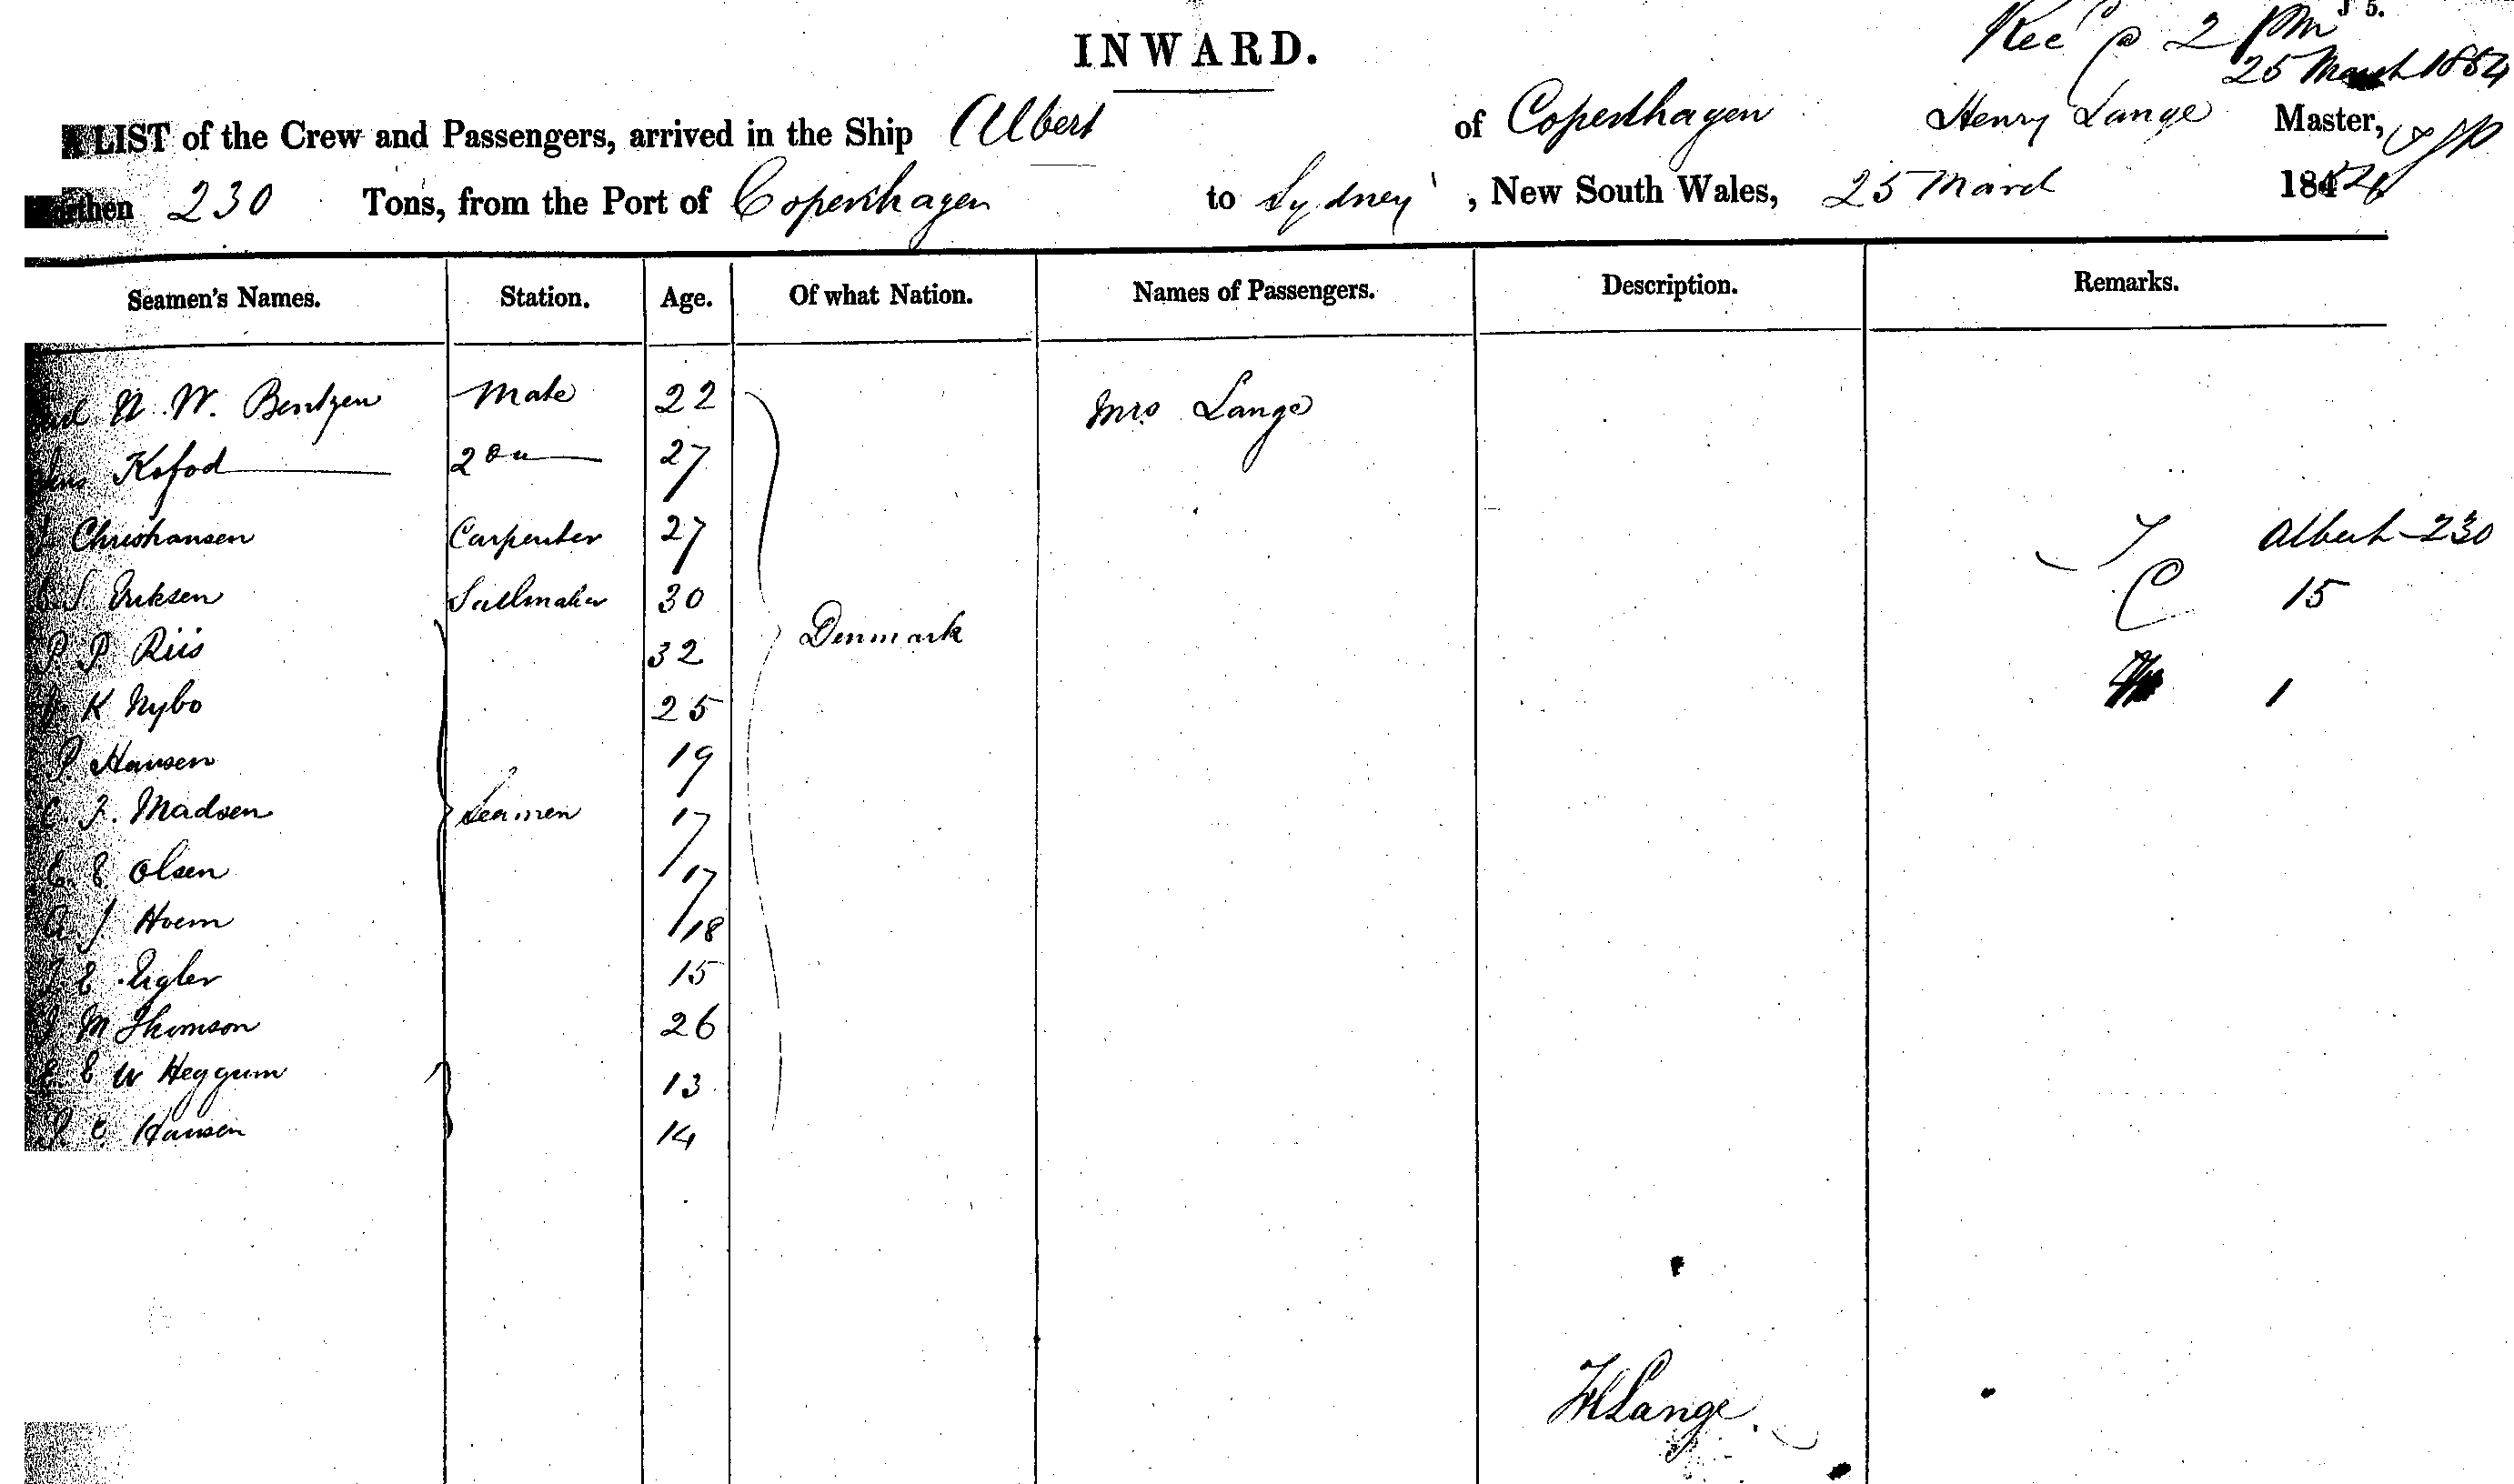 J 5.
INWARD.
Rec @ 2 pm
25 March 1854
LIST of the Crew and Passengers, arrived in the Ship Albert of Copenhagen Henry Lange Master,
230 Tons, from the Port of Copenhagen to Sydney, New South Wales, 25 March 184
Seamen's Names. Station. Age. Of what Nation. Names of Passengers. Description. Remarks.
N. W. Bentzen Mate 22 Mrs Lange
Kofod 2 27
Christiansen Carpenter 27 Albert - 230
Eriksen Sailmaker 30 C 15
P. P. Riis 32 Denmark
K Nybo 25 1
P. Hansen 19
C. F. Madsen Seamen 17
E. Olsen 17
A. J Hoem 18
E. Ugler 15
M Thomson 26
E W Heggum 13
P. C. Hansen 14
HLange.